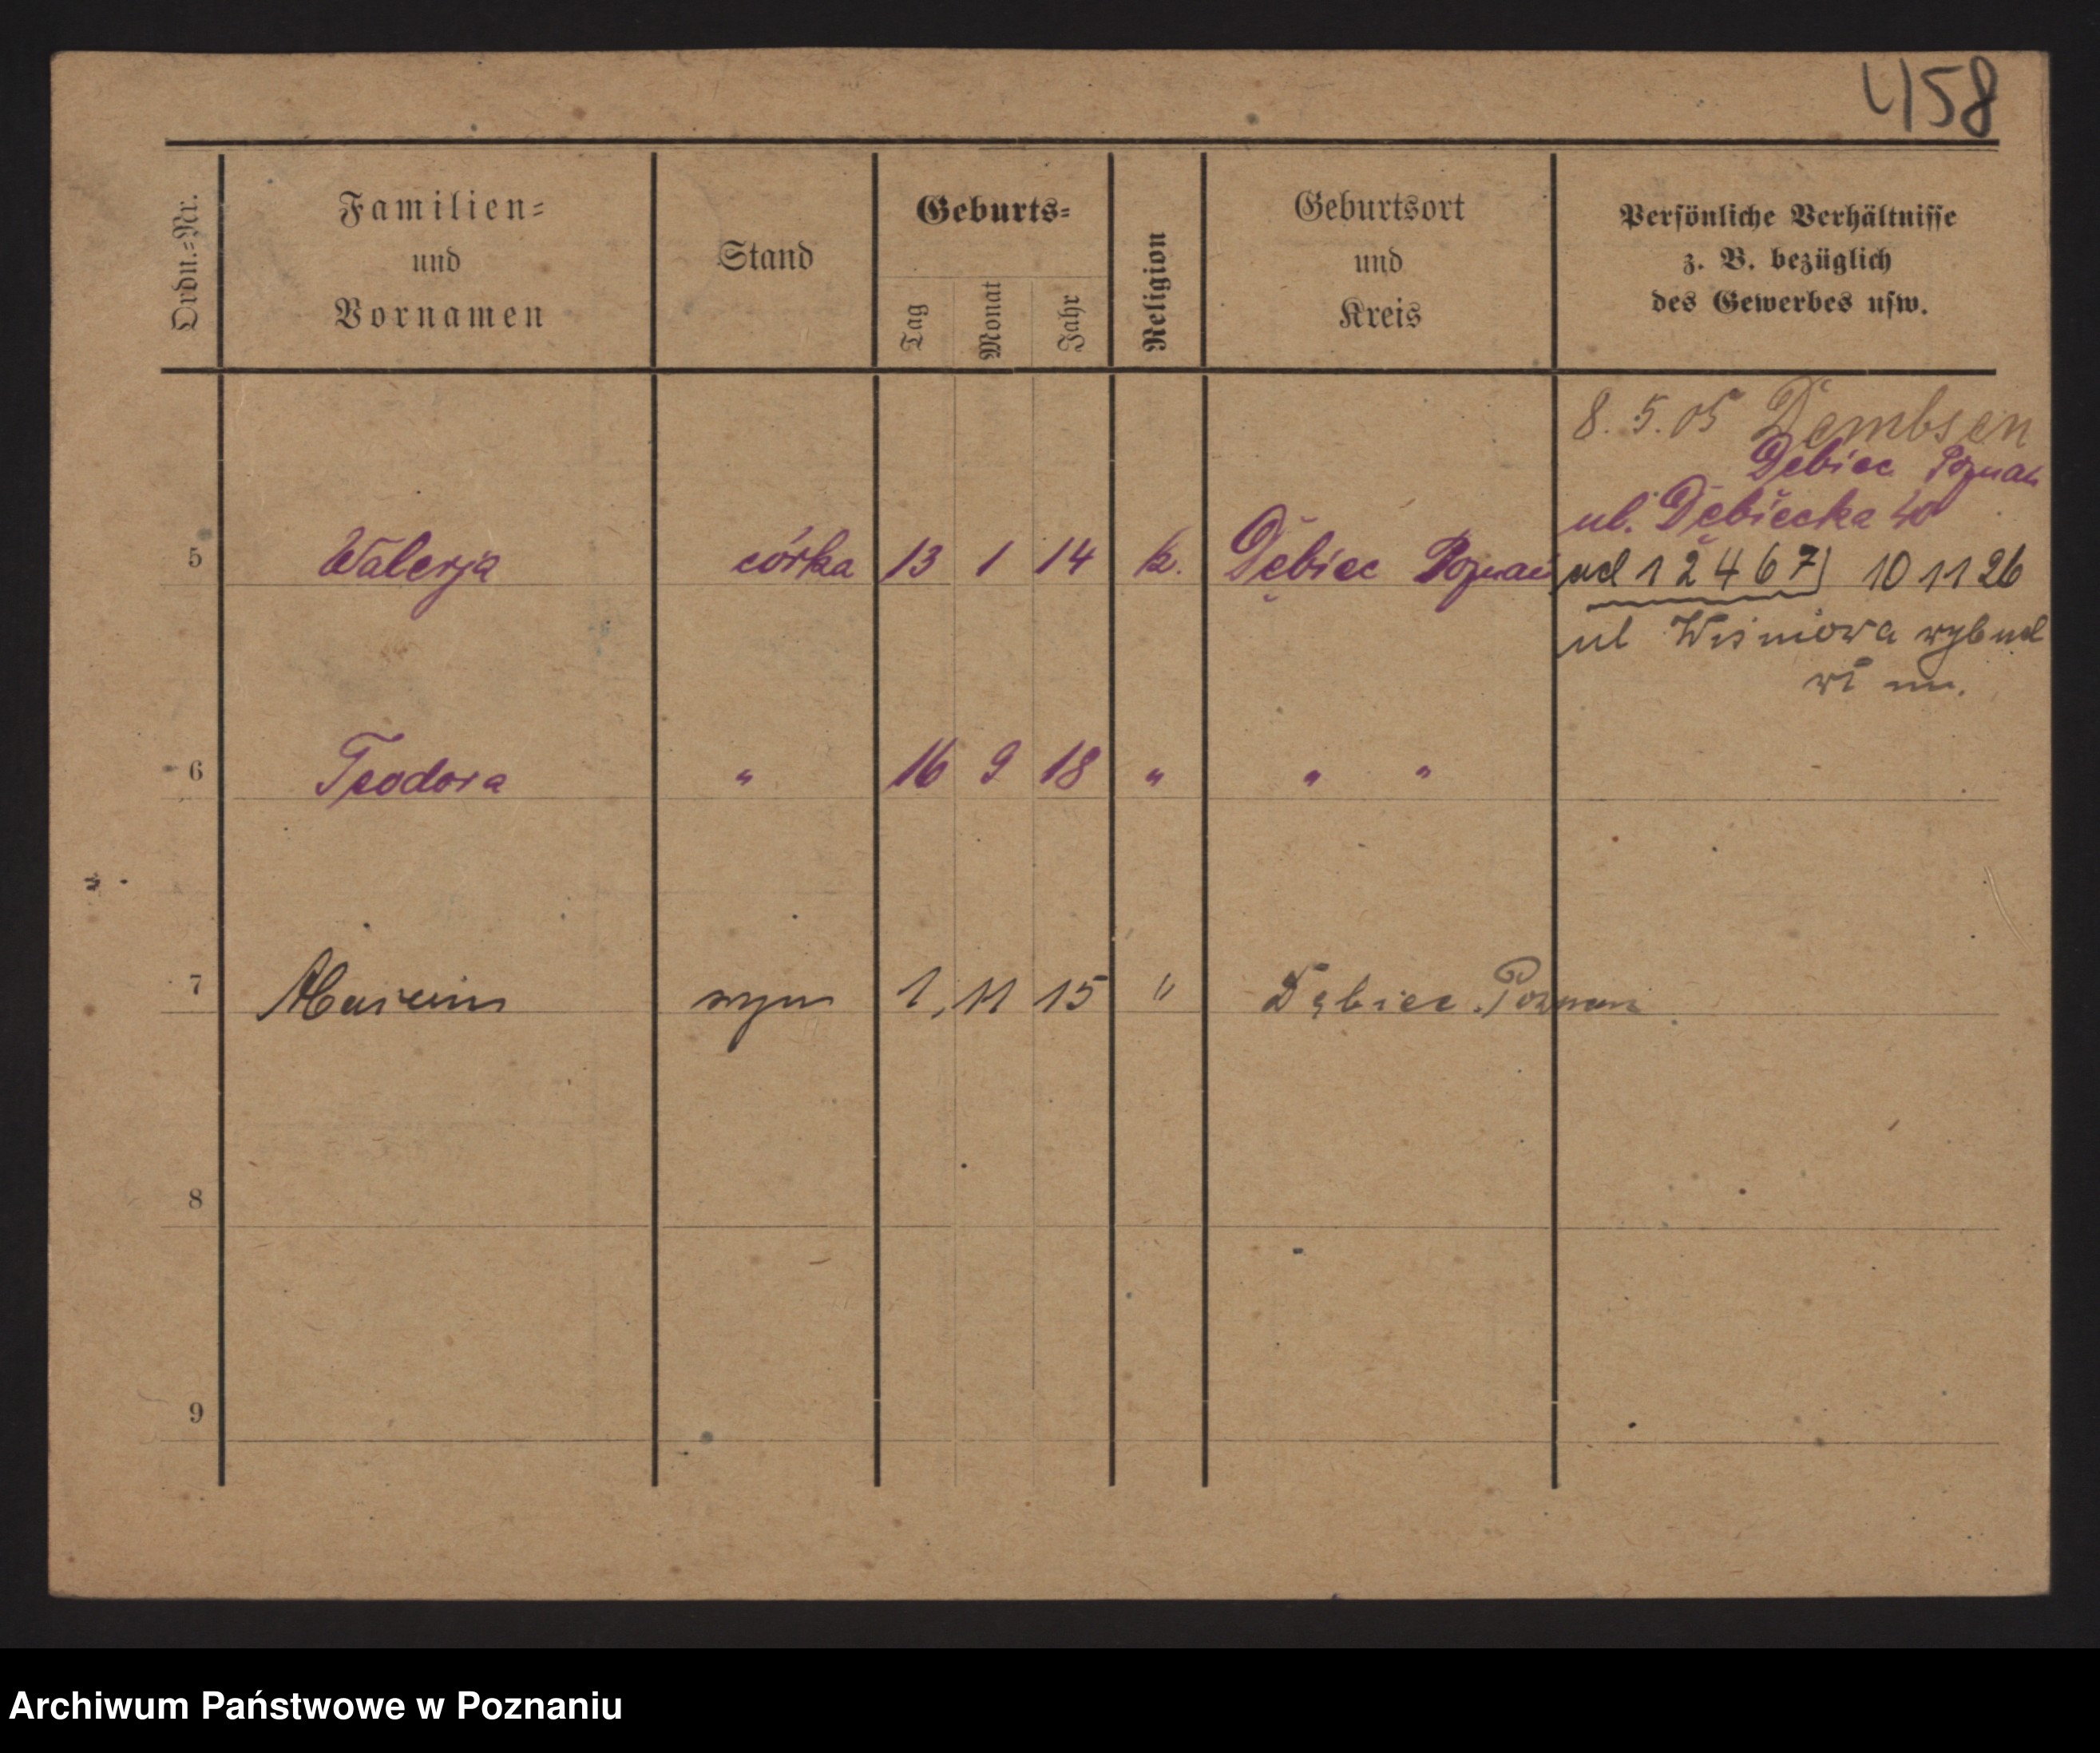 458
Ordn.-Nr.
Familien-
und
Vornamen
Stand
Geburts-
Tag
Monat
Jahr
Religion
Geburtsort
und
Kreis
Persönliche Verhältnisse
z. B. bezüglich
des Gewerbes usw.
8. 5. 05 Dembsen
Dębiec Poznań
ul. Dębiecka 40
5 Walerja córka 13 1 14 k. Dębiec Poznań
ad 12467 10 11 26
ul Wiśniowa wybud
6 Teodora " 16 9 18 " " "
7 Marcin syn 1, 11 15 " Dębiec Poznań
8
9
Archiwum Państwowe w Poznaniu